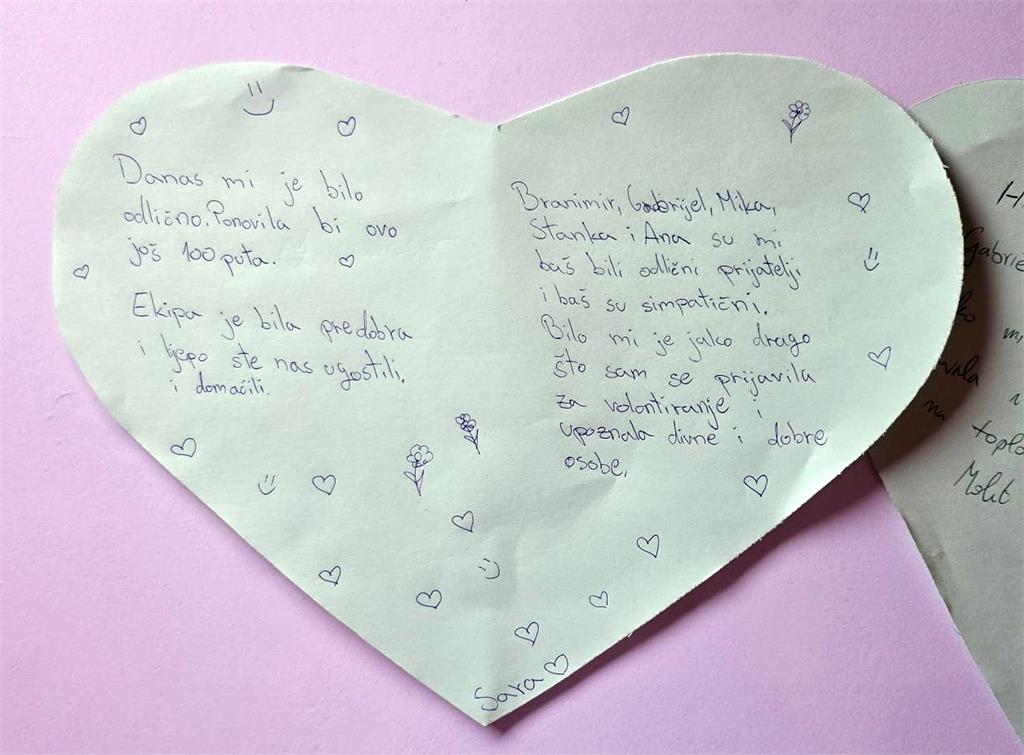 Danas mi je bilo
odlično. Ponovila bi ovo
još 100 puta.
Ekipa je bila predobra
i ljepo ste nas ugostili.
i domaćili.
Branimir, Gabrijel, Mika,
Stanka i Ana su mi
baš bili odlični prijatelji
i baš su simpatični.
Bilo mi je jako drago
što sam se prijavila
za volontiranje i
upoznala divne i dobre
osobe.
Sara
H
Gabrie
ko mi
vala
na toplo
Molit